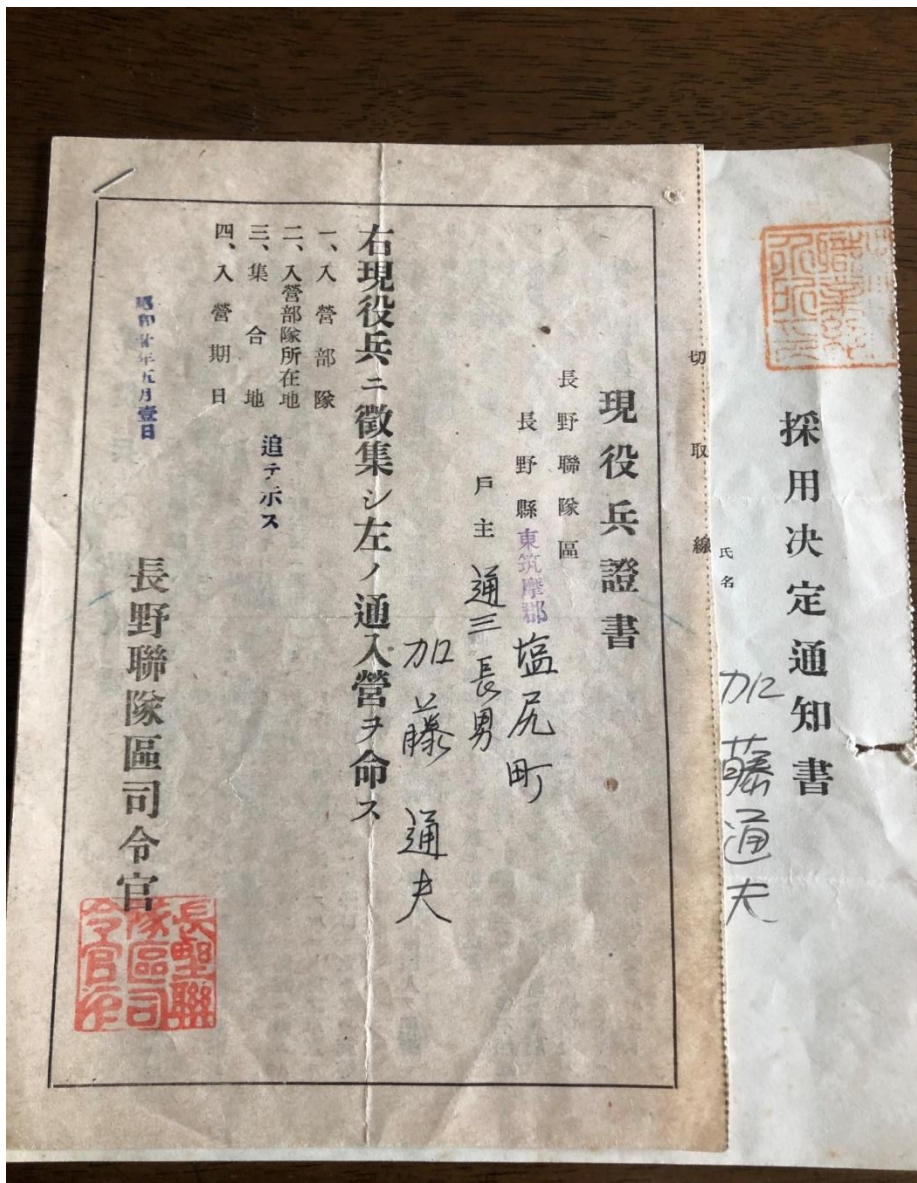 採用決定通知書
氏名 加藤通夫
切取線
現役兵證書
長野聯隊區
長野縣東筑摩郡塩尻町
戶主 通三 長男
加藤通夫
右現役兵ニ徵集シ左ノ通入營ヲ命ス
一、入營部隊
二、入營部隊所在地
三、集合地
追テ示ス
四、入營期日
昭和廿年五月壹日
長野聯隊區司令官
長野聯隊區司令官印